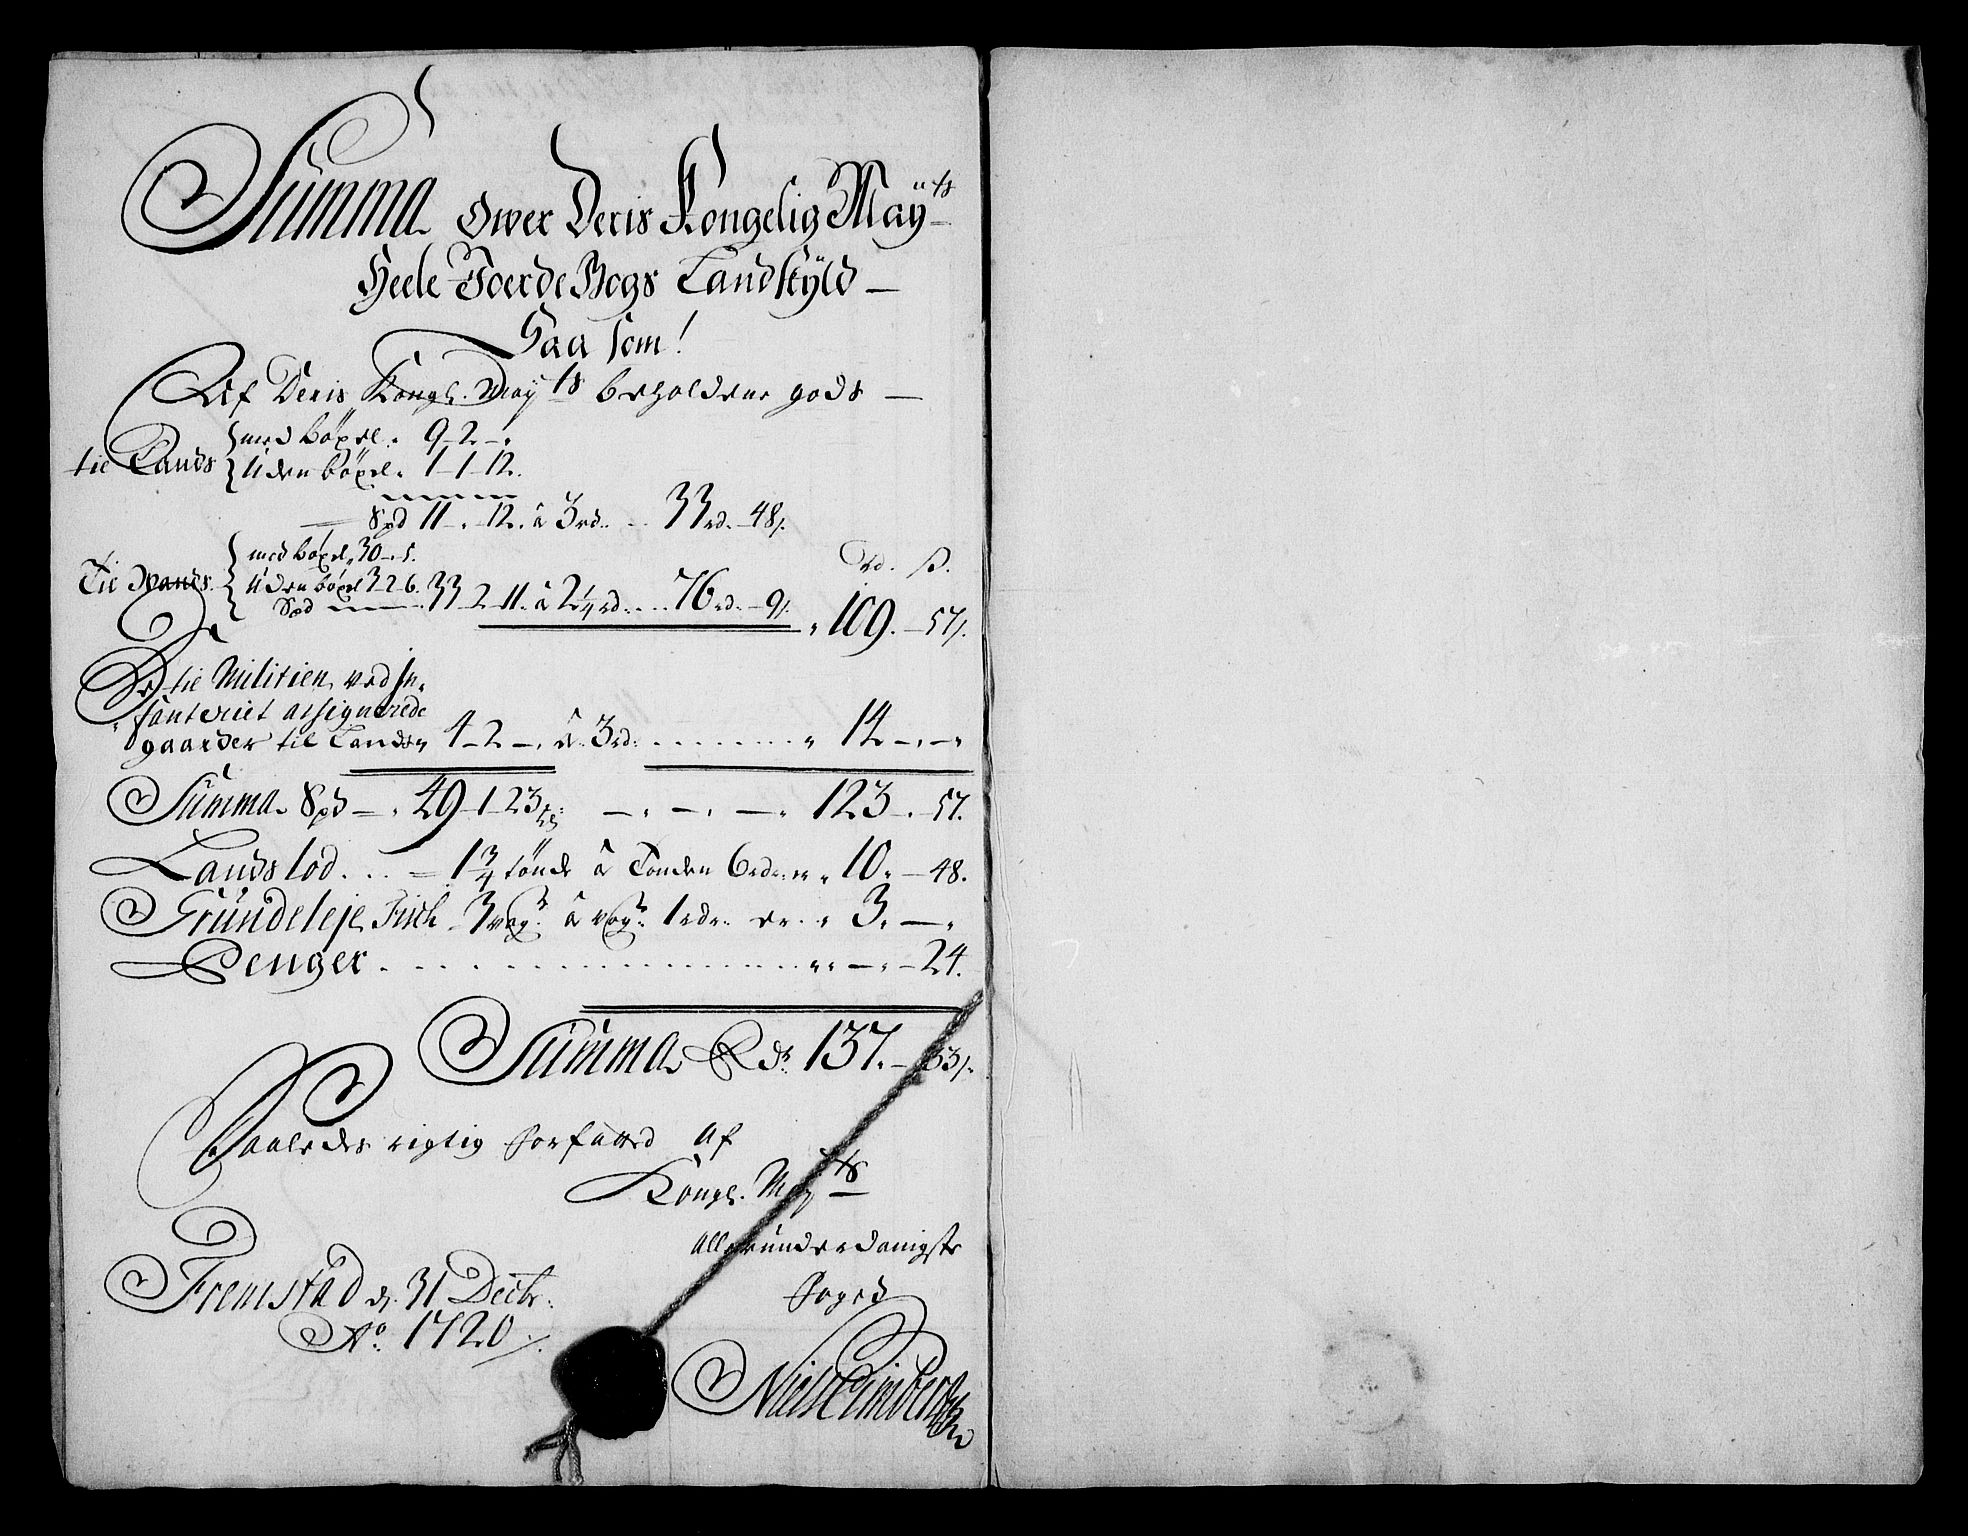 Summa Over Deris Kongelig May^ts
Heele Joerde Bogs Landskÿld —
Saa som!
Af Deris Kongl. May^ts beholdene gods —
til Lands { med böxel. 9–2–.
uden böxel. 1–1–12.
Spd 11–.–12. â 3 rd. .. 33 rd. 48 s.
Til Wands. { med böxel, 30–.5. Rd. s.
uden böxel 3 2 6.
Spd 33 2 11. â 2 1/4 rd. .... 76 rd. – 9 s. 109. – 57 s.
De til Militien ved In-
fanteriet assignerede
gaarder til Lands 4–2–. â 3 rd. ........ 14 –.–.
Summa Spd – . 49–1–23 — . — . — . 123 –. 57.
Landslod. ... = 1 3/4 tönde â Tonden 6 rd er . 10. – 48.
Grundeleje Fisk 3 vog^r. â vog^n. 1 rdr. er . 3. –.
Penger . . . . . . . . . . . . . . . . . . . . – . – 24.
Summa Rdr 137. – 33 s.
Saaledes rigtig forfatted af
Kongl. May^ts
allerunderdanigste
Foged
Fremstad d. 31 Decbr.
Ao. 1720
Niels